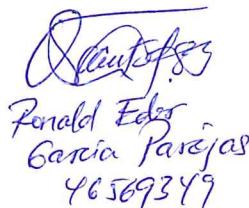 Ronald Eder
Garcia Parejas
46569349